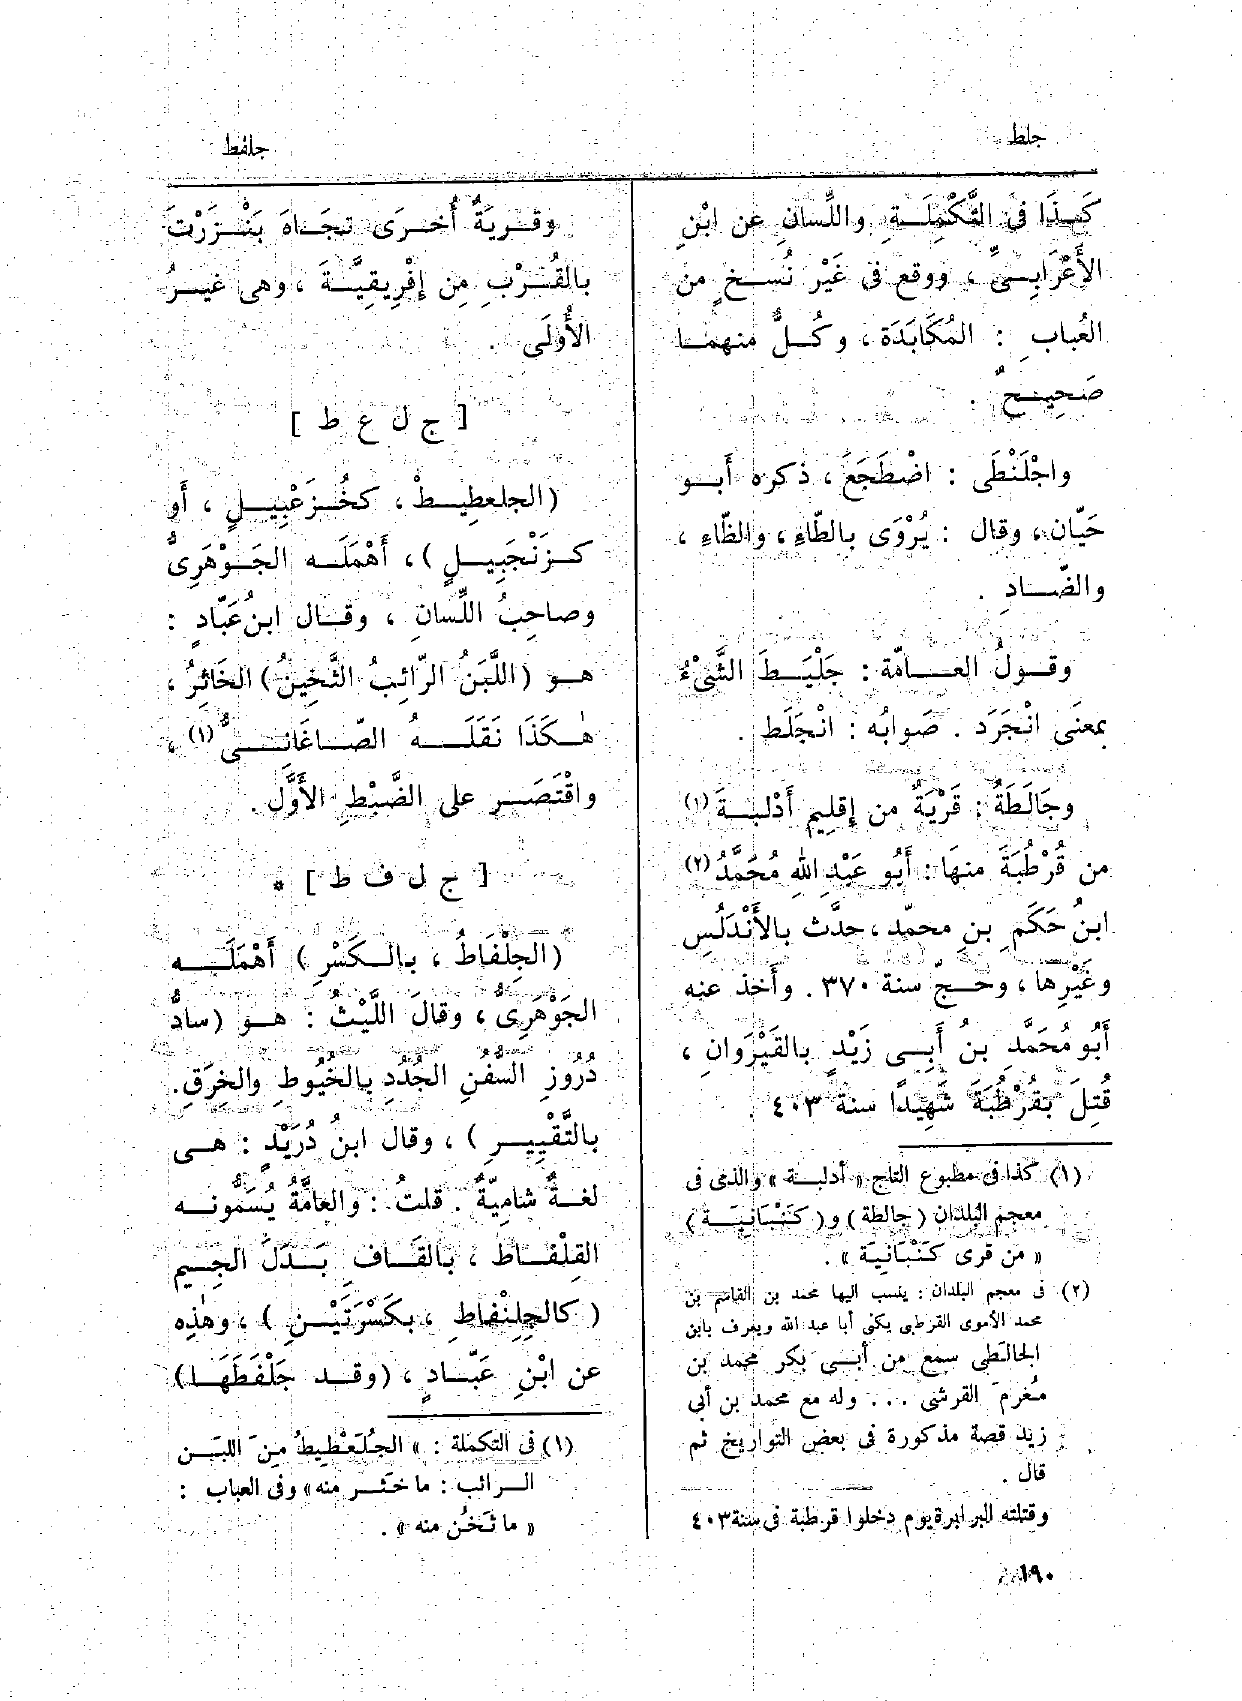 جلط
جلفط
كَـذَا فى التَّكْمِلَـةِ واللِّسانِ عن ابْنِ
الأَعْرَابِـىِّ ، ووقع فى غَيْرِ نُسـخٍ من
العُباب : المُكَابَدَة ، وكُـلٌّ منهمـا
صَحِيـحٌ .
واجْلَنْطَى : اضْطَجَعَ ، ذكره أَبـو
حَيّان ، وقال : يُرْوَى بالطّاءِ ، والظّاءِ ،
والضّـادِ .
وقـولُ العـامّة : جَلْيَـطَ الشَّىْءُ
بمعنَى انْجَرَد . صَوابُه : انْجَلَط .
وجَالَطَةُ : قَرْيَةٌ من إِقلِيم أَدْلبـةَ (١)
من قُرْطُبَةَ منهَا : أَبُو عَبْدِ اللهِ مُحَمَّدُ (٢)
ابنُ حَكَم بنِ محمّد ، حدَّث بالأَنْدَلُسِ
وغَيْرِها ، وحـجّ سنة ٣٧٠ . وأَخذ عنه
أَبُو مُحَمَّدِ بنُ أَبِـى زَيْدٍ بالقَيْرَوانِ ،
قُتِلَ بقُرْطُبَةَ شَهِيدًا سنة ٤٠٣ .
(١) كذا فى مطبوع التاج « أدلبـة » والذى فى
معجم البلدان ( جالطة ) و ( كَنْبَانِيَـة )
« من قرى كَنْبَانِيَة » .
(٢) فى معجم البلدان : ينسب اليها محمد بن القاسم بن
محمد الأموى القرطبى يكنى أبا عبد الله ويعرف بابن
الجالَطى سمع من أبـى بكر محمد بن
مُغرم القرشى ... وله مع محمد بن أبى
زيد قصة مذكورة فى بعض التواريخ ثم
قال .
وقتلته البرابرة يوم دخلوا قرطبة فى سنة ٤٠٣
وقـريَةٌ أُخـرَى تجَـاهَ بَنْـزَرْتَ
بالقُـرْبِ مِن إِفْرِيقِيَّـةَ ، وهى غيـرُ
الأُولَى .
[ ج ل ع ط ]
(الجلعطِيـطْ ، كخُـزَعْبِيـلٍ ، أَو
كـزَنْجَبِيـلٍ ) ، أَهْمَلَـه الجَـوْهَرِىُّ
وصاحِبُ اللِّسانِ ، وقـال ابنُ عَبّادٍ :
هـو (اللَّبَنُ الرّائبُ الثَّخِينُ) الخَاثِرُ ،
هٰـكَذَا نَقَلَـهُ الصّـاغَانِـىُّ (١) ،
واقْتَصَـر على الضَّبْطِ الأَوَّل .
[ ج ل ف ط ] *
(الجِلْفَاطُ ، بالـكَسْرِ ) أَهْمَلَـه
الجَوْهَرِىُّ ، وقالَ اللَّيْثُ : هـو (سادُّ
دُرُوزِ السُّفنِ الجُدُدِ بالخُيُوطِ والخِرَقِ.
بالتَّقْيِيـرِ ) ، وقال ابنُ دُرَيْدٍ : هـى
لغـةٌ شامِيّةٌ . قلتُ : والعامَّةُ يُسَمُّونـه
القِلْفـاط ، بالقَـافِ بَـدَلَ الجِـيم
( كالجِلِنْفاطِ ، بكَسْرَتَيْـنِ ) ، وهٰذِه
عن ابْنِ عَبّـادٍ ، (وقـد جَلْفَطَهَـا)
(١) فى التكملة : « الجُلَعْطِيطُ مِنَ اللبَـن
الـرائب : ما خـثـر منه » وفى العباب :
« ما ثَخُن منه » .
١٩٠